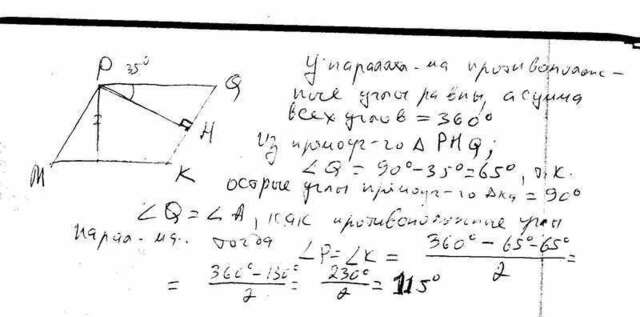 P 35° Q
H
M K
У паралл-ма противополож-
ные углы равны, а сумма
всех углов = 360°
Из прямоуг-го Δ PHQ;
∠Q = 90° - 35° = 65°, т.к.
острые углы прямоуг-го Δка = 90°
∠Q = ∠A, как противоположные углы
парал-ма. тогда
∠P = ∠K = (360° - 65° - 65°)/2 =
= (360° - 130°)/2 = 230°/2 = 115°